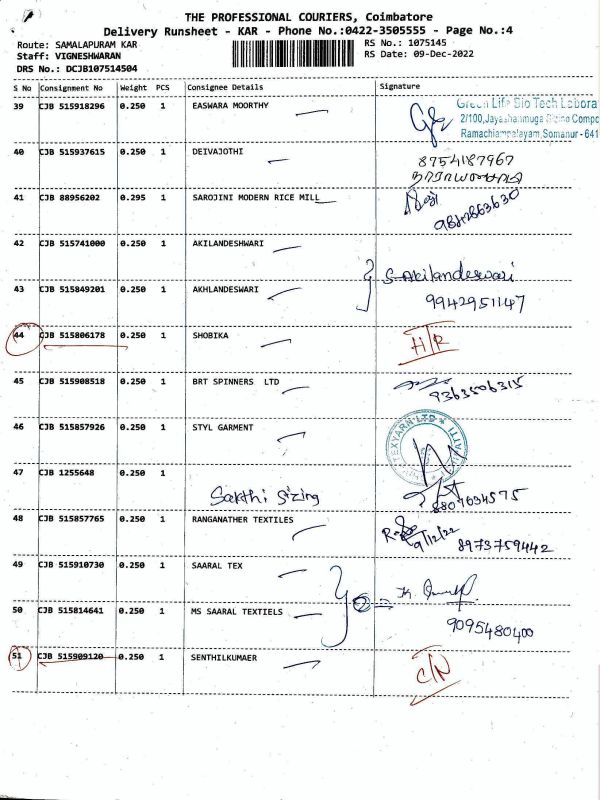 THE PROFESSIONAL COURIERS, Coimbatore
Delivery Runsheet - KAR - Phone No.:0422-3505555 - Page No.:4
Route: SAMALAPURAM KAR
RS No.: 1075145
Staff: VIGNESHWARAN
RS Date: 09-Dec-2022
DRS No.: DCJB107514504
S No Consignment No Weight PCS Consignee Details Signature
39 CJB 515918296 0.250 1 EASWARA MOORTHY
Green Life Bio Tech Labora
2/100,Jayashanmuga Sizing Compo
Ramachiampalayam,Somanur - 641
40 CJB 515937615 0.250 1 DEIVAJOTHI 8754187967
41 CJB 88956202 0.295 1 SAROJINI MODERN RICE MILL
9842863630
42 CJB 515741000 0.250 1 AKILANDESHWARI
S. Akilandeswari
43 CJB 515849201 0.250 1 AKHLANDESWARI 9942951147
44 CJB 515806178 0.250 1 SHOBIKA H/R
45 CJB 515908518 0.250 1 BRT SPINNERS LTD 9363506315
46 CJB 515857926 0.250 1 STYL GARMENT
TEXYARN LTD
47 CJB 1255648 0.250 1
Sakthi Sizing 8807634575
48 CJB 515857765 0.250 1 RANGANATHER TEXTILES
9/12/22 8973759442
49 CJB 515910730 0.250 1 SAARAL TEX
50 CJB 515814641 0.250 1 MS SAARAL TEXTIELS
9095480400
51 CJB 515909120 0.250 1 SENTHILKUMAER C/N